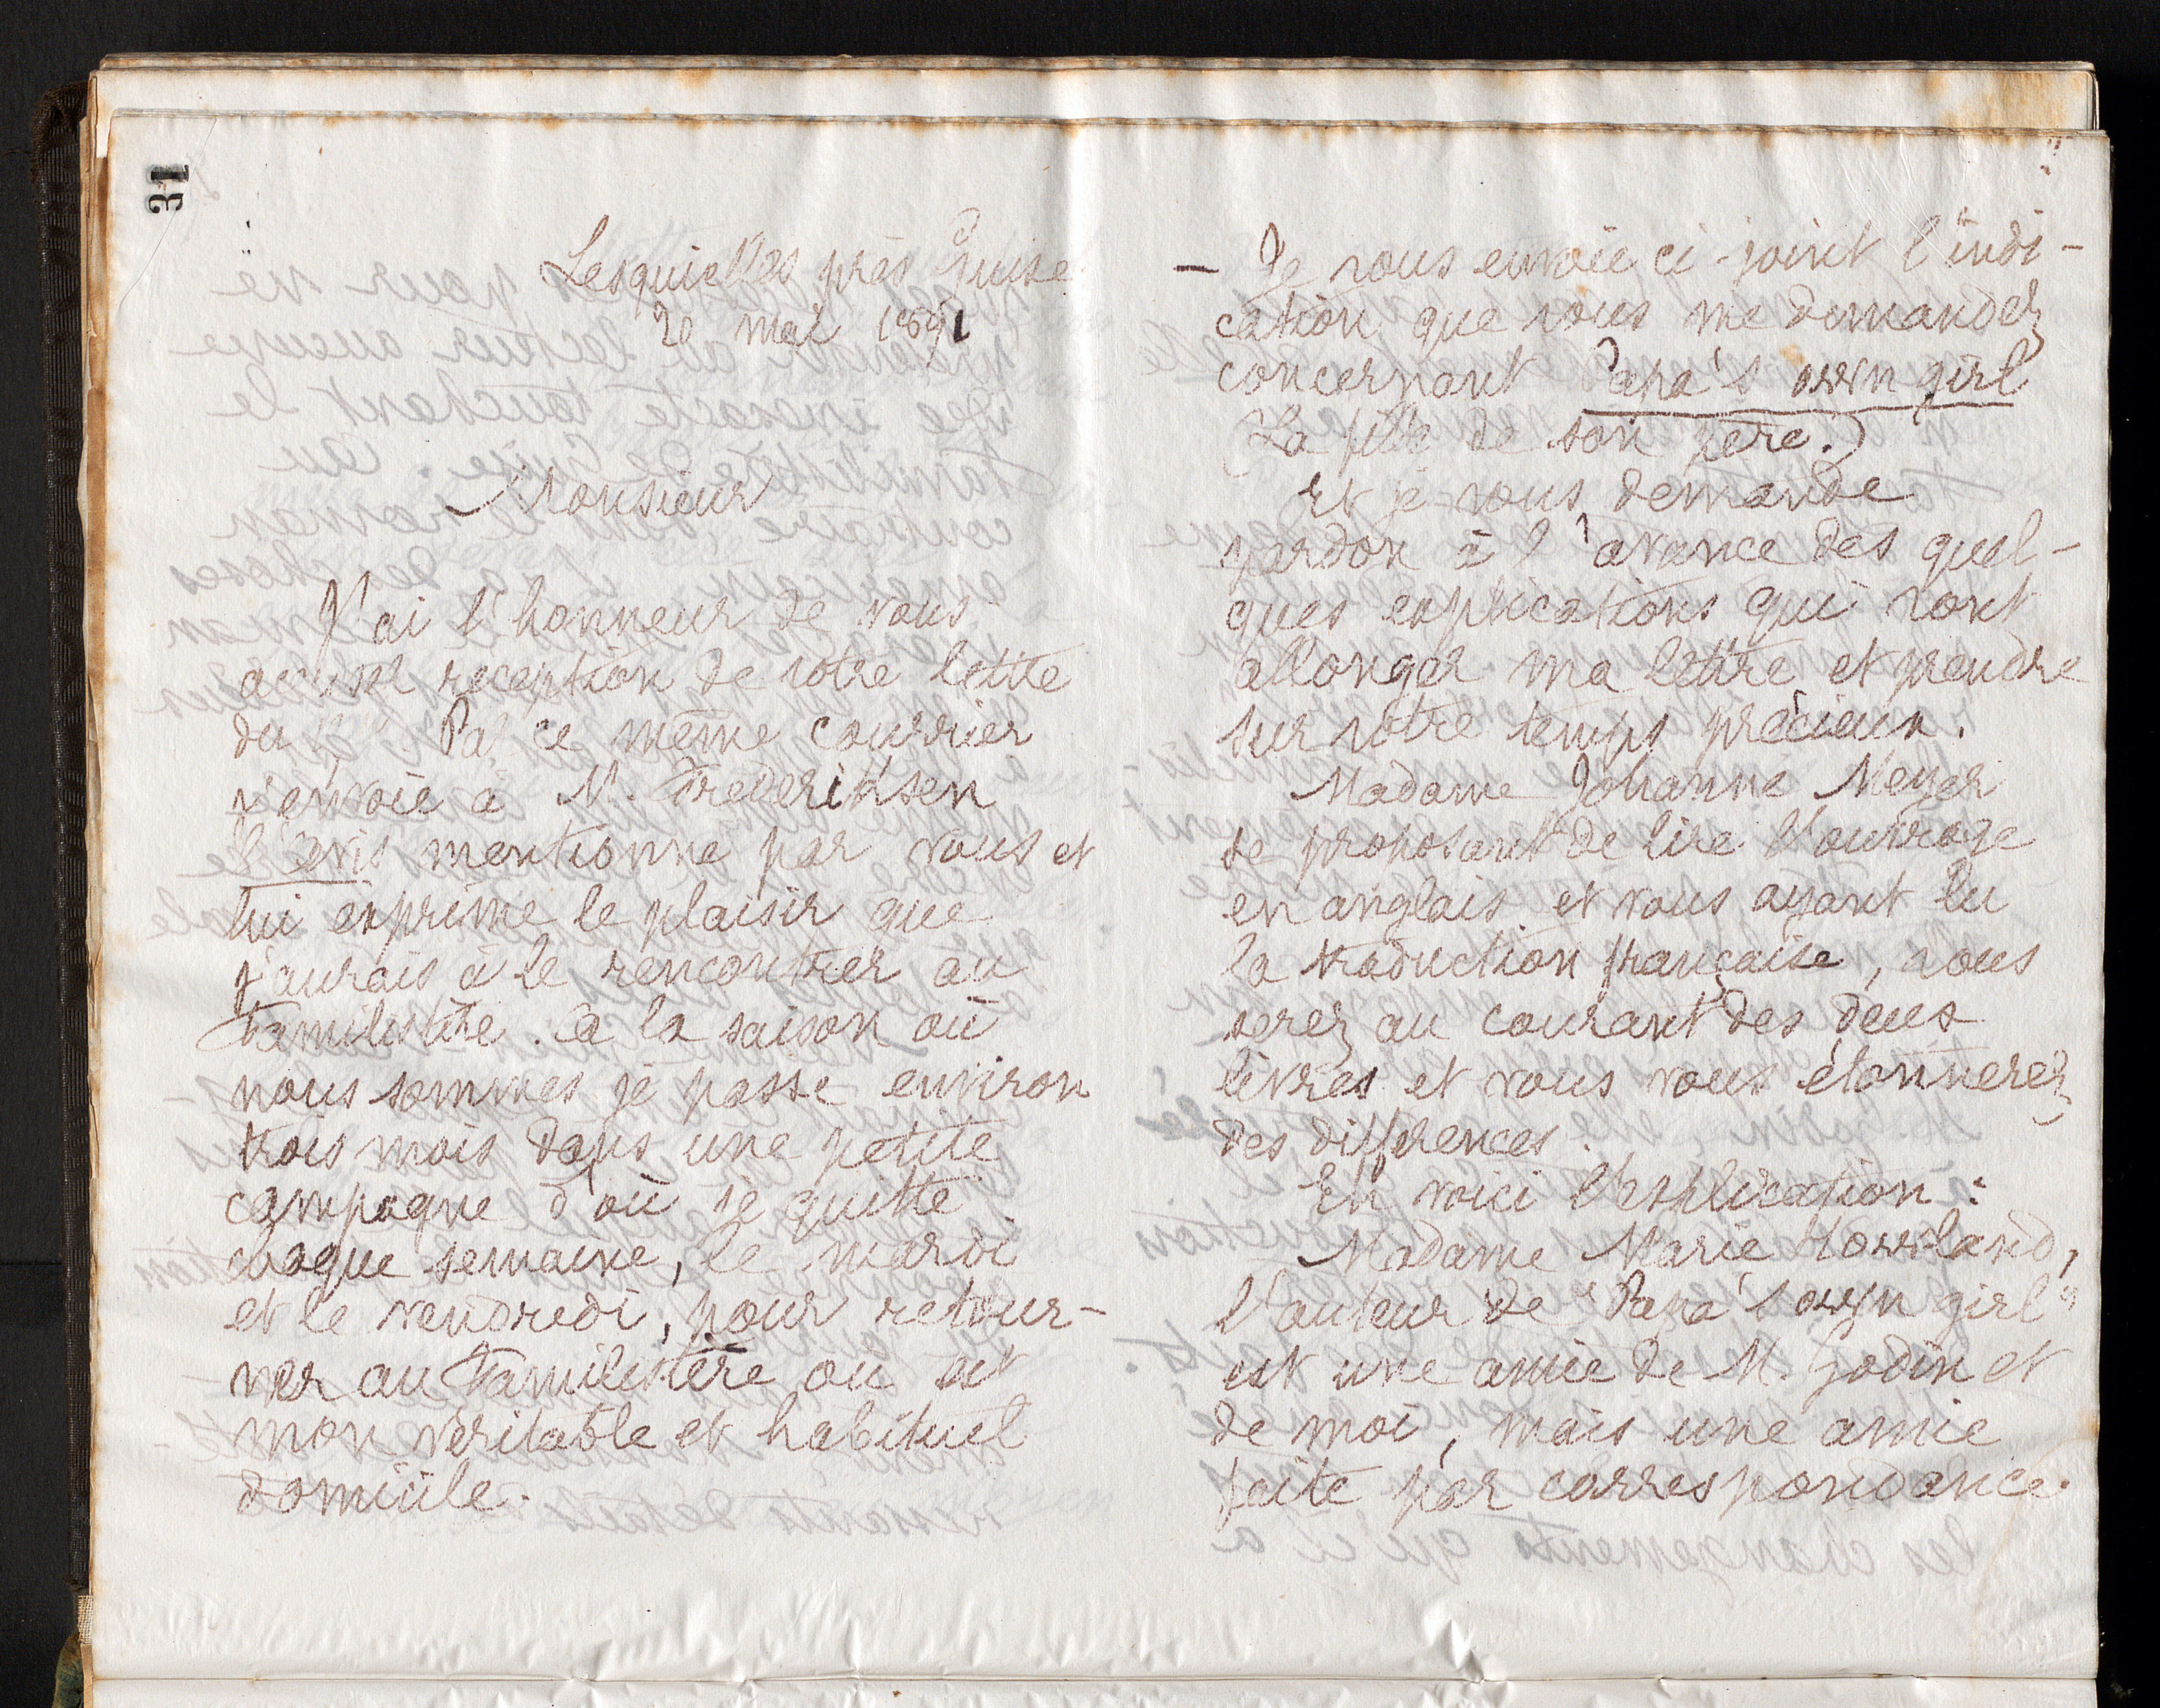 31
Lesquielles près Guise
20 mai 1891
Monsieur
J'ai l'honneur de vous
accuser réception de votre lettre
du Par ce même courrier
j'envoie à M. Frederiksen
l'avis mentionné par vous et
lui exprime le plaisir que
j'aurais à le rencontrer au
Familistère. A la saison où
nous sommes je passe environ
trois mois dans une petite
campagne d'où je quitte
chaque semaine, le mardi
et le vendredi, pour retour-
ner au Familistère où est
mon véritable et habituel
domicile.
— Je vous envoie ci-joint l'indi-
cation que vous me demandez
concernant Papa's own girl
(La fille de son père.)
Et je vous demande
pardon à l'avance des quel-
ques explications qui vont
allonger ma lettre et prendre
sur votre temps précieux.
Madame Johanne Meyer
se proposant de lire l'ouvrage
en anglais et vous ayant lu
la traduction française, vous
serez au courant des deux
livres et vous vous étonnerez
des différences.
En voici l'explication :
Madame Marie Howland,
l'auteur de "Papa's own girl"
est une amie de M. Godin et
de moi, mais une amie
faite par correspondance.